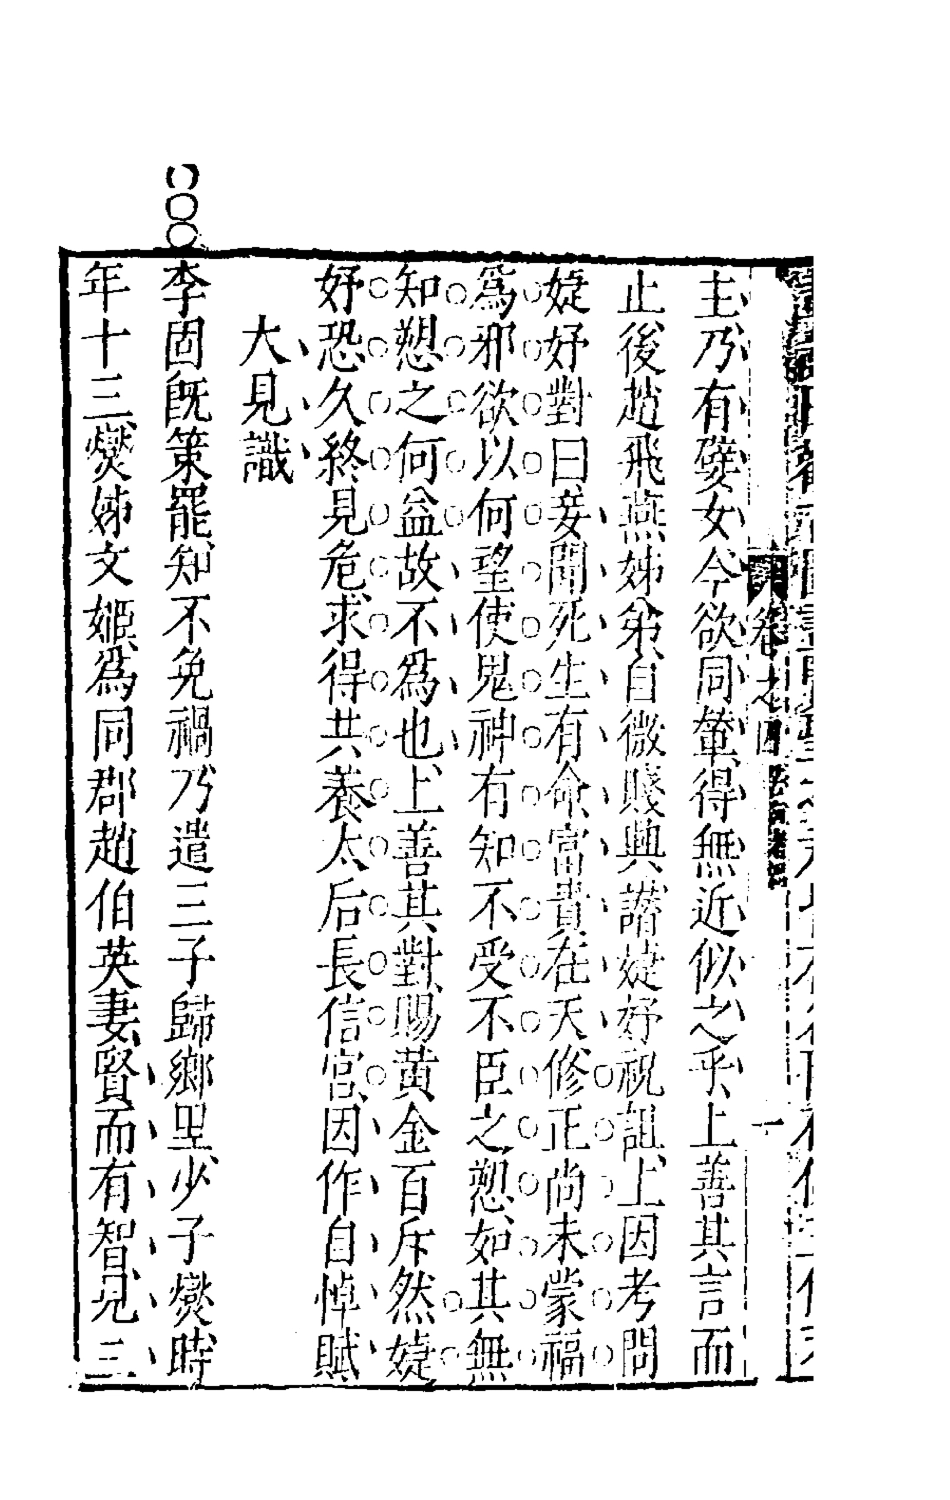 卷之四
主乃有嬖女今欲同輦得無近似之乎上善其言而
止後趙飛燕姊弟自微賤興譖婕妤祝詛上因考問
婕妤對曰妾聞死生有命富貴在天修正尚未蒙福
爲邪欲以何望使鬼神有知不受不臣之愬如其無
知愬之何益故不爲也上善其對賜黃金百斥然婕
妤恐久終見危求得共養太后長信宮因作自悼賦
大見識
李固旣策罷知不免禍乃遣三子歸鄉里少子爕時
年十三爕姊文姬爲同郡趙伯英妻賢而有智見三